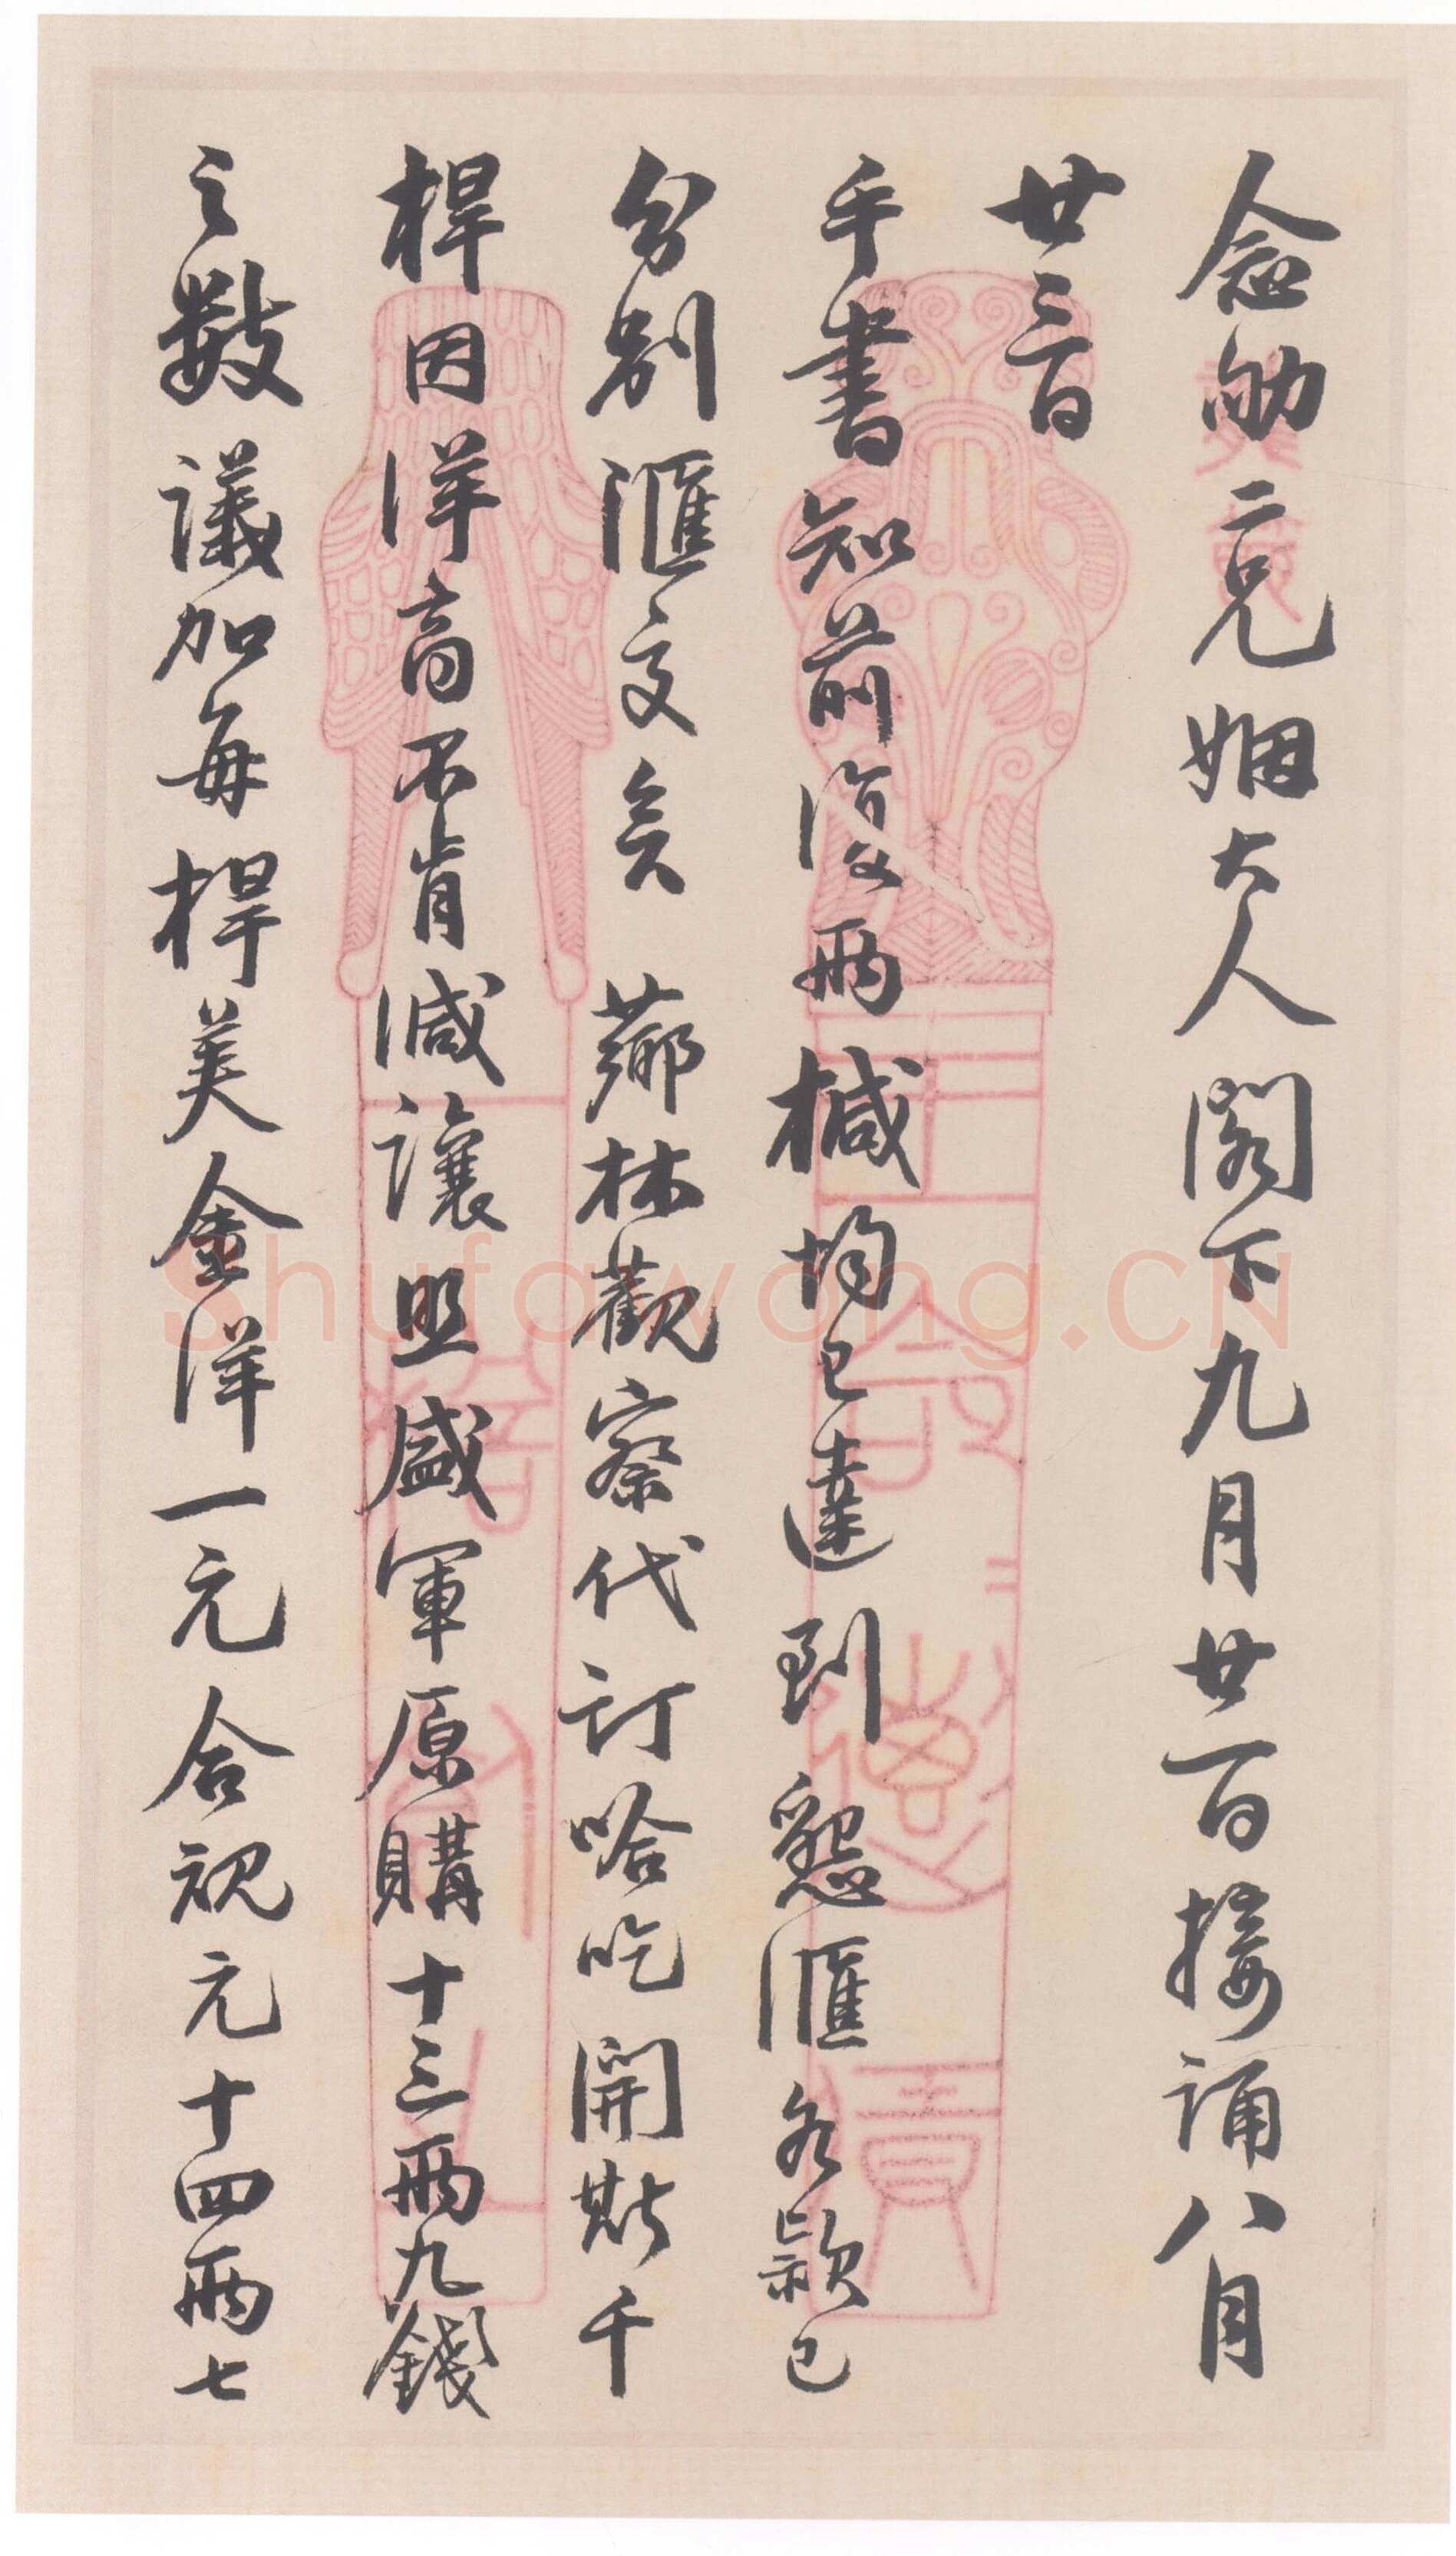 念劬二兄姻大人閣下九月廿一日接誦八月
廿三日
手書知前復兩椷均已達到懇匯各款已
分别匯交矣薌林觀察代訂哈吃開斯千
桿因洋商不肯減讓照盛軍原購十三兩九錢
之數議加每桿美金洋一元合規元十四兩七
Shufawang.CN